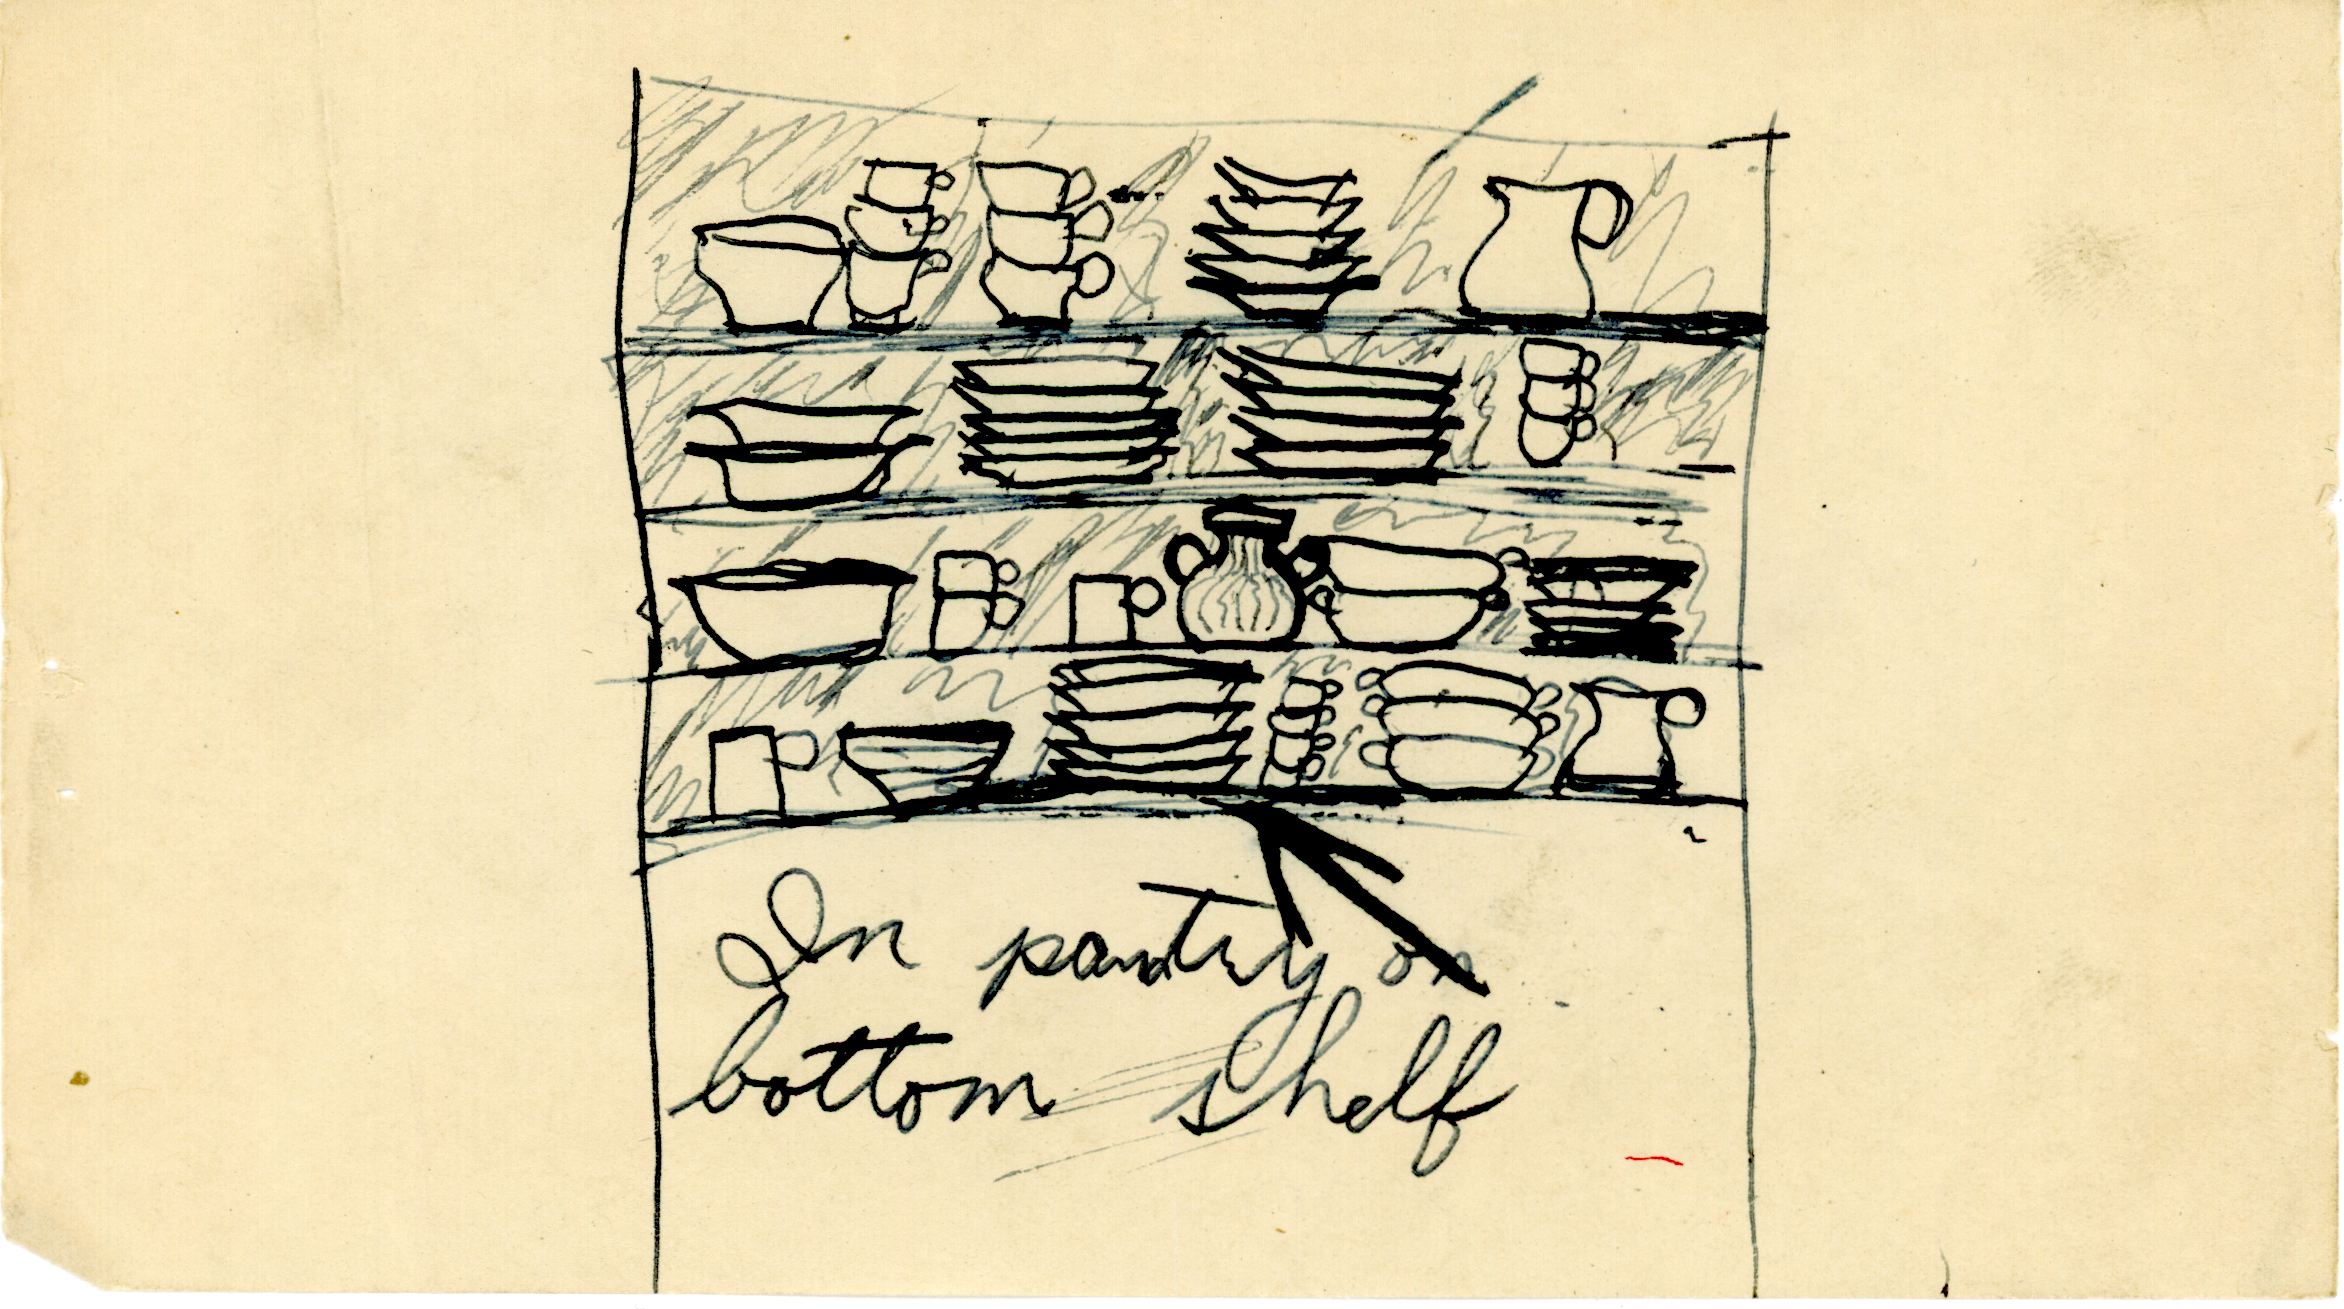 In pantry on
bottom shelf